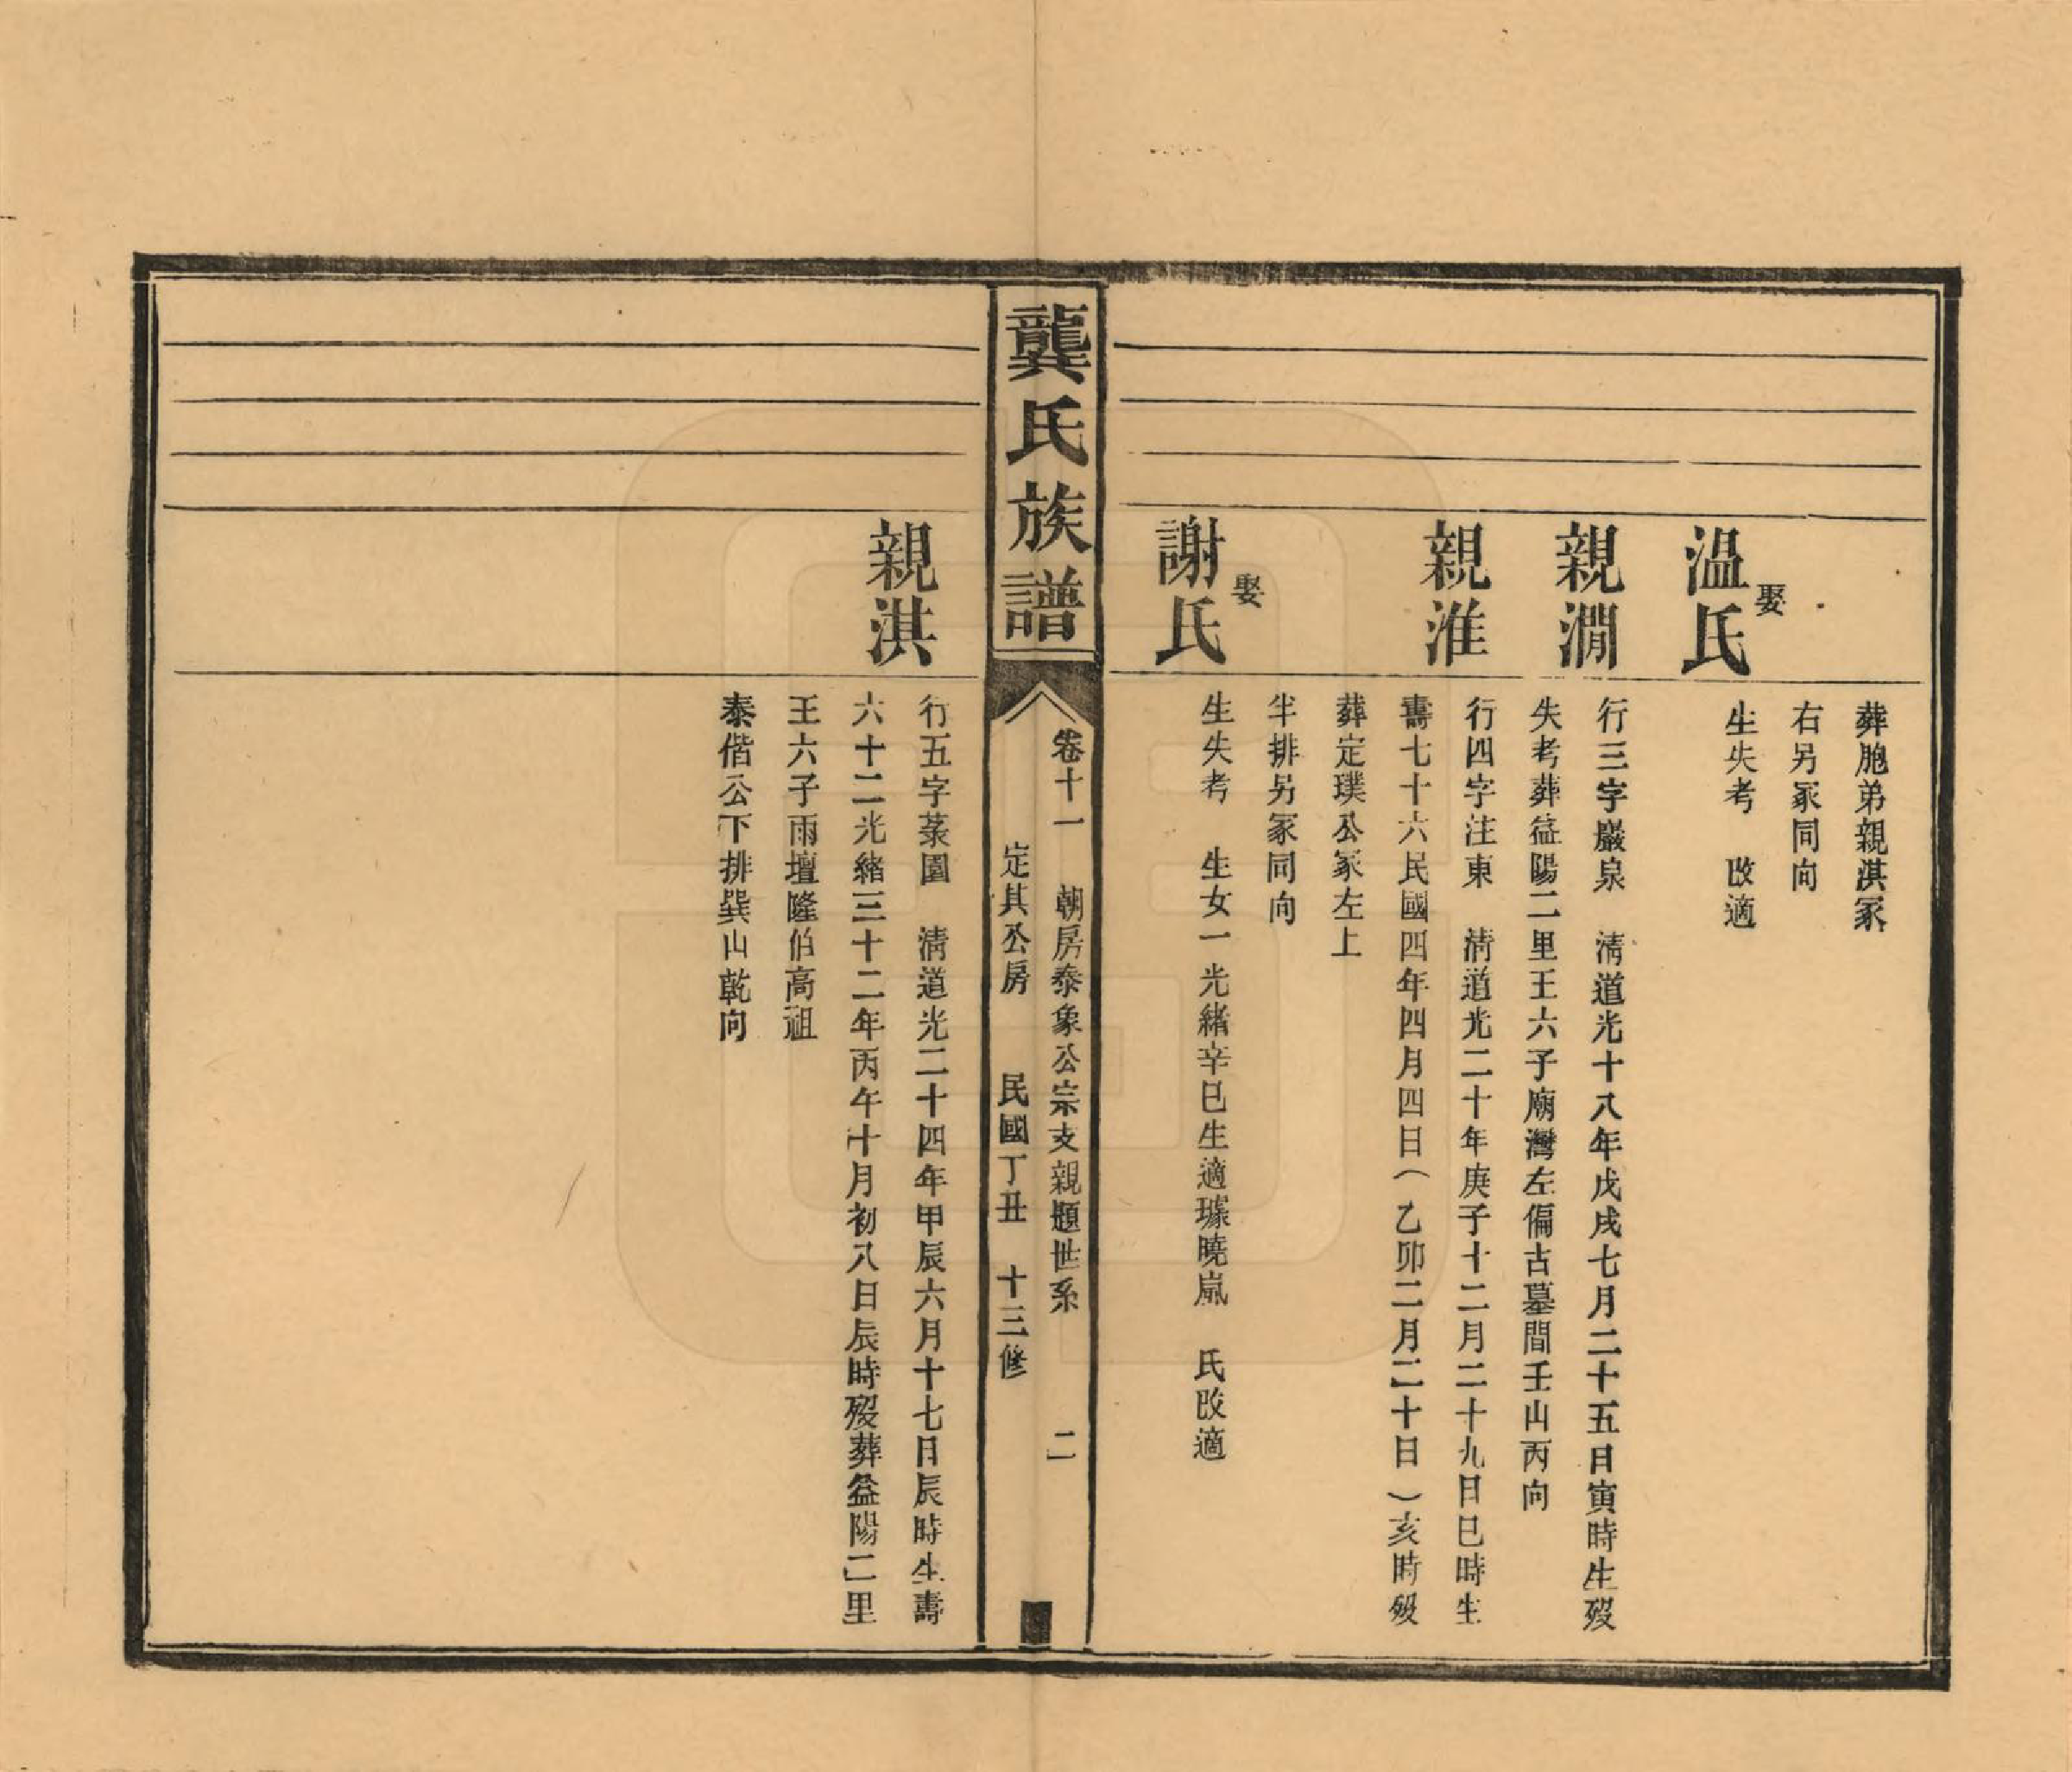 葬胞弟親淇冢
右另冢同向
娶
温氏
生失考　改適
親澗
行三字巖泉　清道光十八年戊戌七月二十五日寅時生歿
失考葬益陽二里王六子廟灣左偏古墓間壬山丙向
親淮
行四字注東　清道光二十年庚子十二月二十九日巳時生
壽七十六民國四年四月四日（乙卯二月二十日）亥時歿
葬定璞公冢左上
半排另冢同向
娶
謝氏
生失考　生女一光緒辛巳生適璩曉嵐　氏改適
龔氏族譜
卷十一　朝房泰象公宗支親題世系　二
定其公房　民國丁丑　十三修
親淇
行五字菉園　清道光二十四年甲辰六月十七日辰時生壽
六十二光緒三十二年丙午十月初八日辰時歿葬益陽二里
王六子雨壇隆伯高祖
泰偕公下排巽山乾向